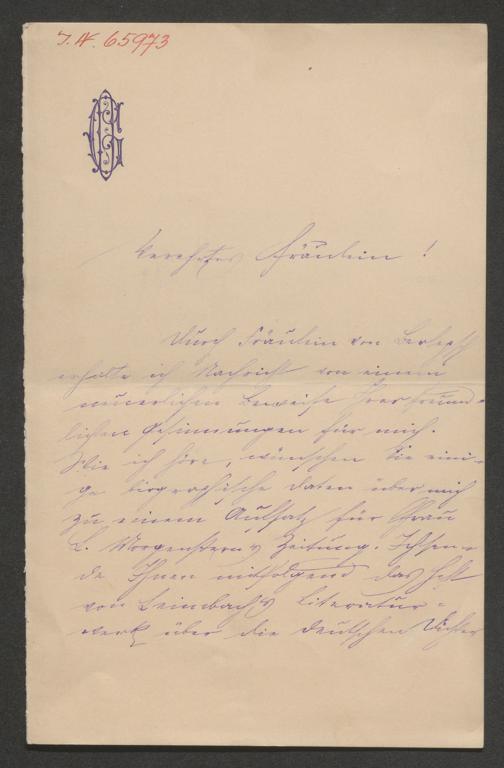 J. N. 65973
Verehrtes Fräulein!
Durch Fräulein von
erhalte ich Nachricht von einem
neuerlichen Beweise Ihrer freund-
lichen Gesinnungen für mich.
Wie ich höre, wünschen Sie eini-
ge biographische Daten über mich
zu einem Aufsatz für Frau
L. Morgenstern's Zeitung. Ich sen-
de Ihnen mitfolgend das Heft
von Leimbach's Literatur-
werk über die deutschen Dichter